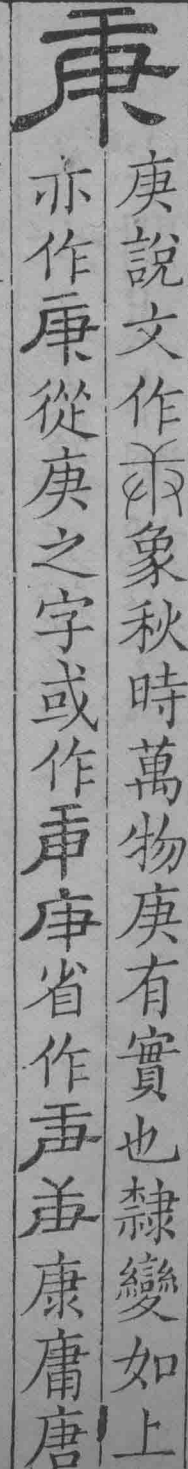 庚
庚說文作𢆉象秋時萬物庚有實也隸變如上
亦作庚從庚之字或作省作康庸唐